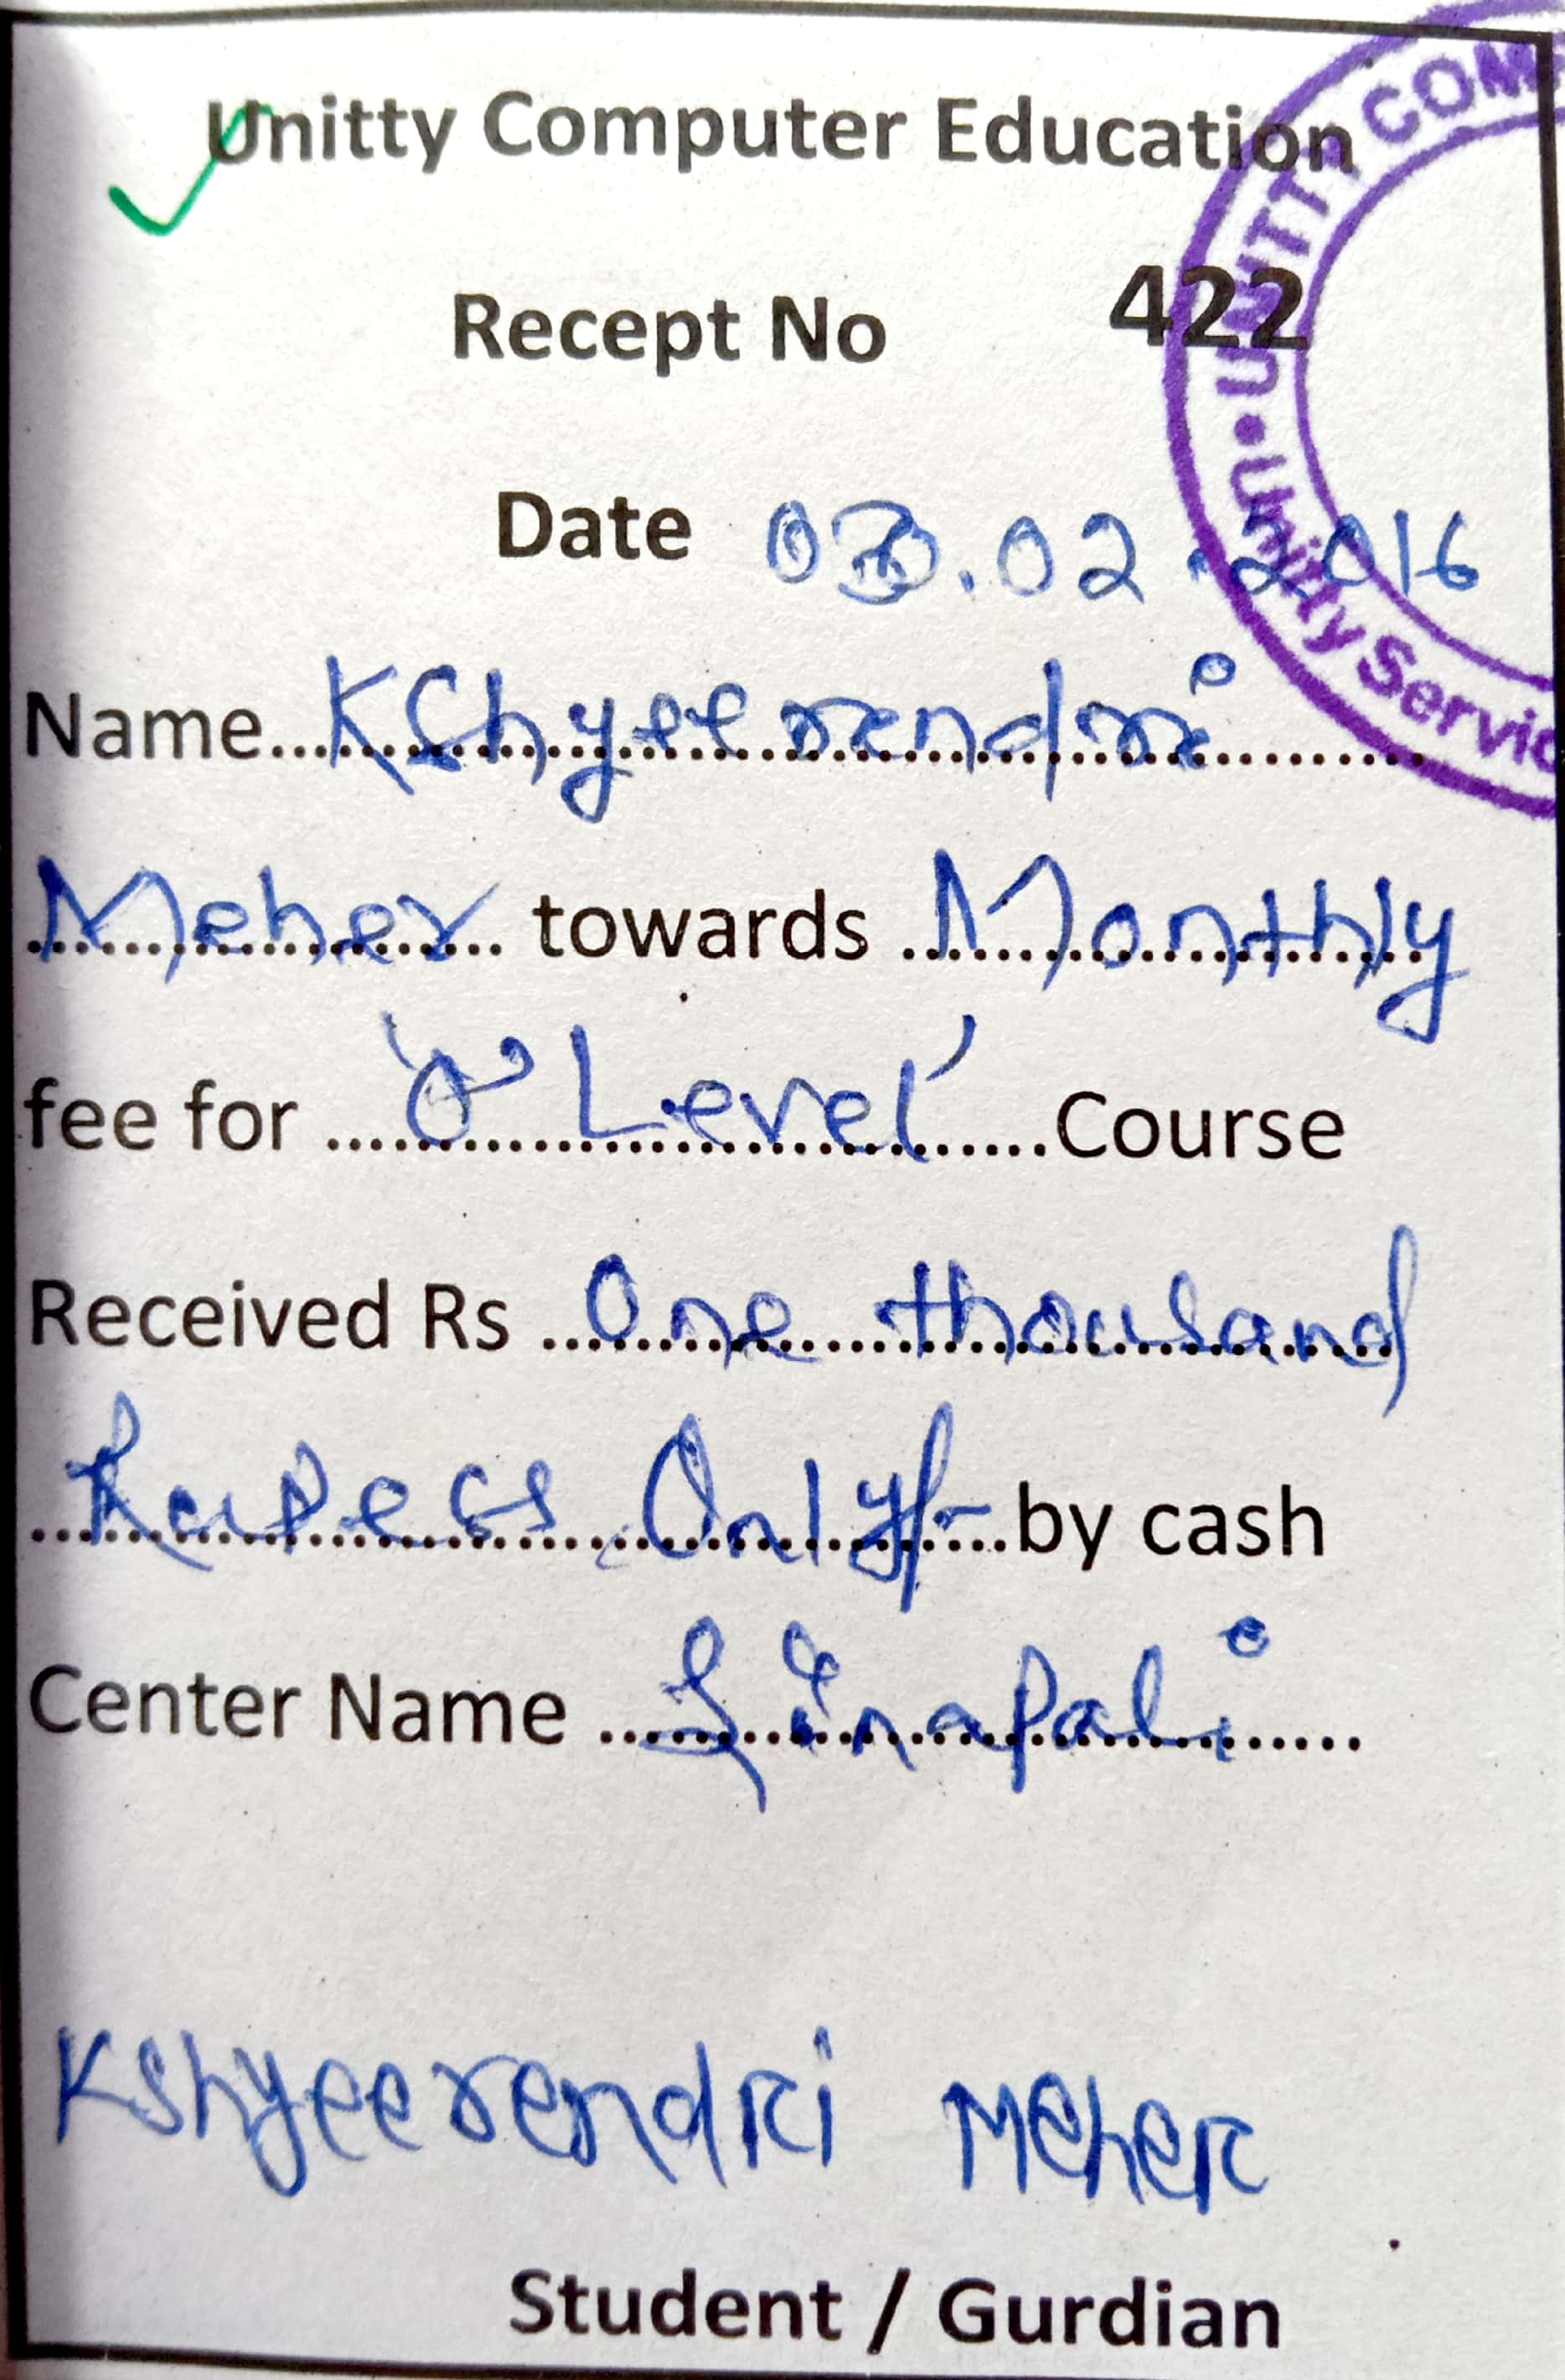 Unitty Computer Education
Recept No 422
Date 03.02.2016
Name...Kshyeerendri...
Meher towards Monthly
fee for 'O' Level' Course
Received Rs One thousand
Rupees Only/- by cash
Center Name Sinapali
Kshyeerendri Meher
Student / Gurdian
UNITTY COM
Unitty Servic